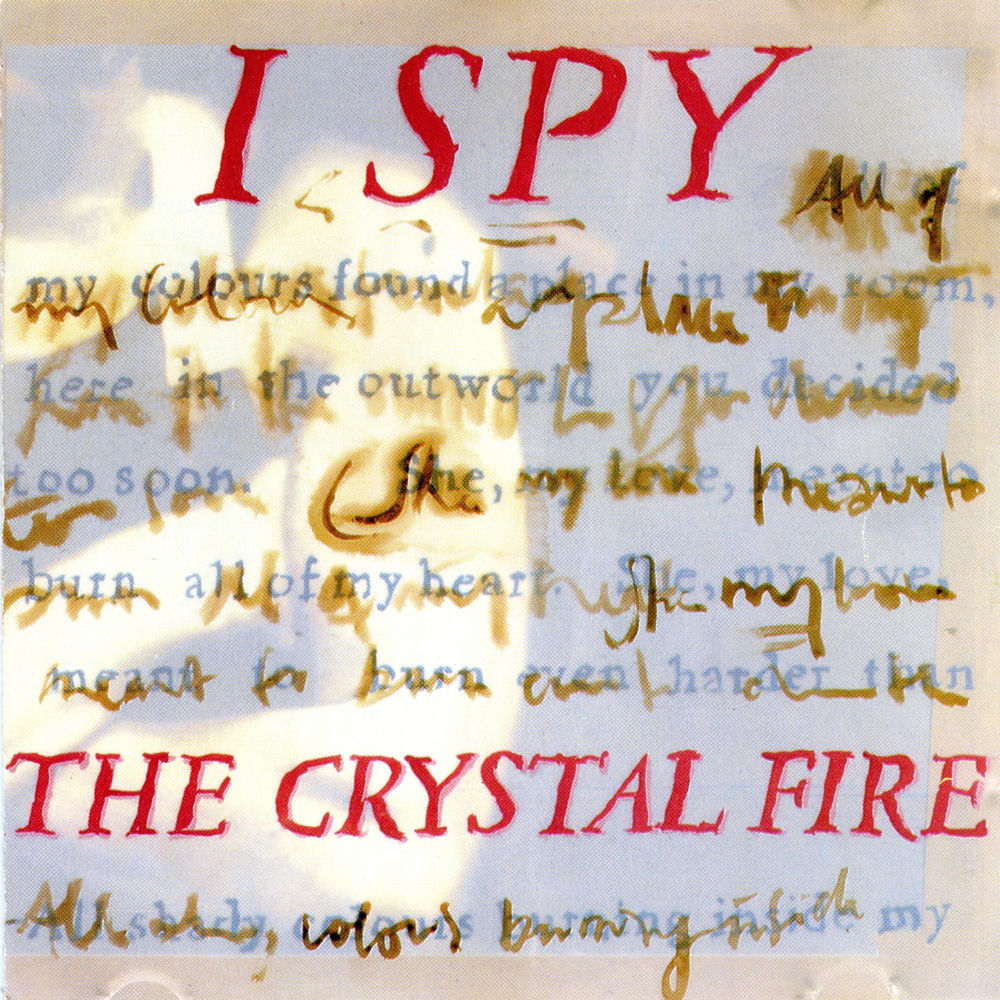 I SPY
All of
my colours found a place in my room,
here in the outworld you decided
too soon. She, my love, meant to
burn all of my heart. She, my love,
meant to burn even harder than
THE CRYSTAL FIRE
All shady, colours burning inside my